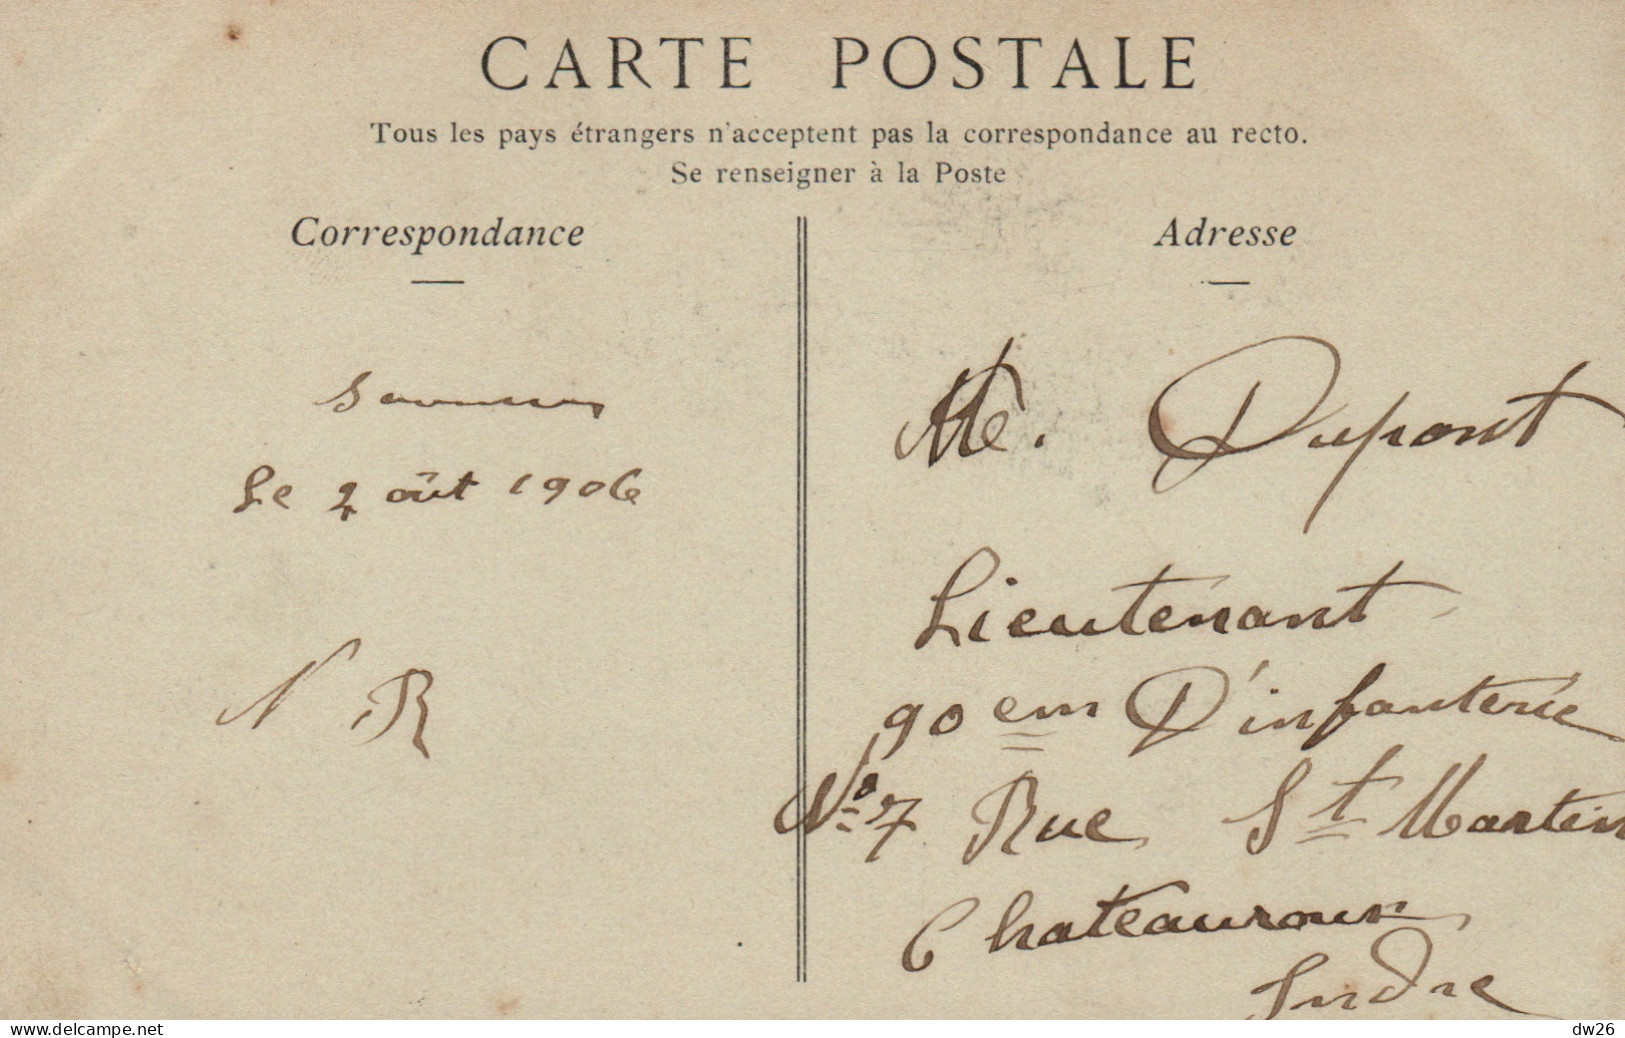 CARTE POSTALE
Tous les pays étrangers n'acceptent pas la correspondance au recto.
Se renseigner à la Poste
Correspondance
Adresse
Le 2 aôut 1906
N R
Dupont
Lieutenant
90 em D'infanterie
No 7 Rue St Martin
Chateauroux
Indre
www.delcampe.net
dw26